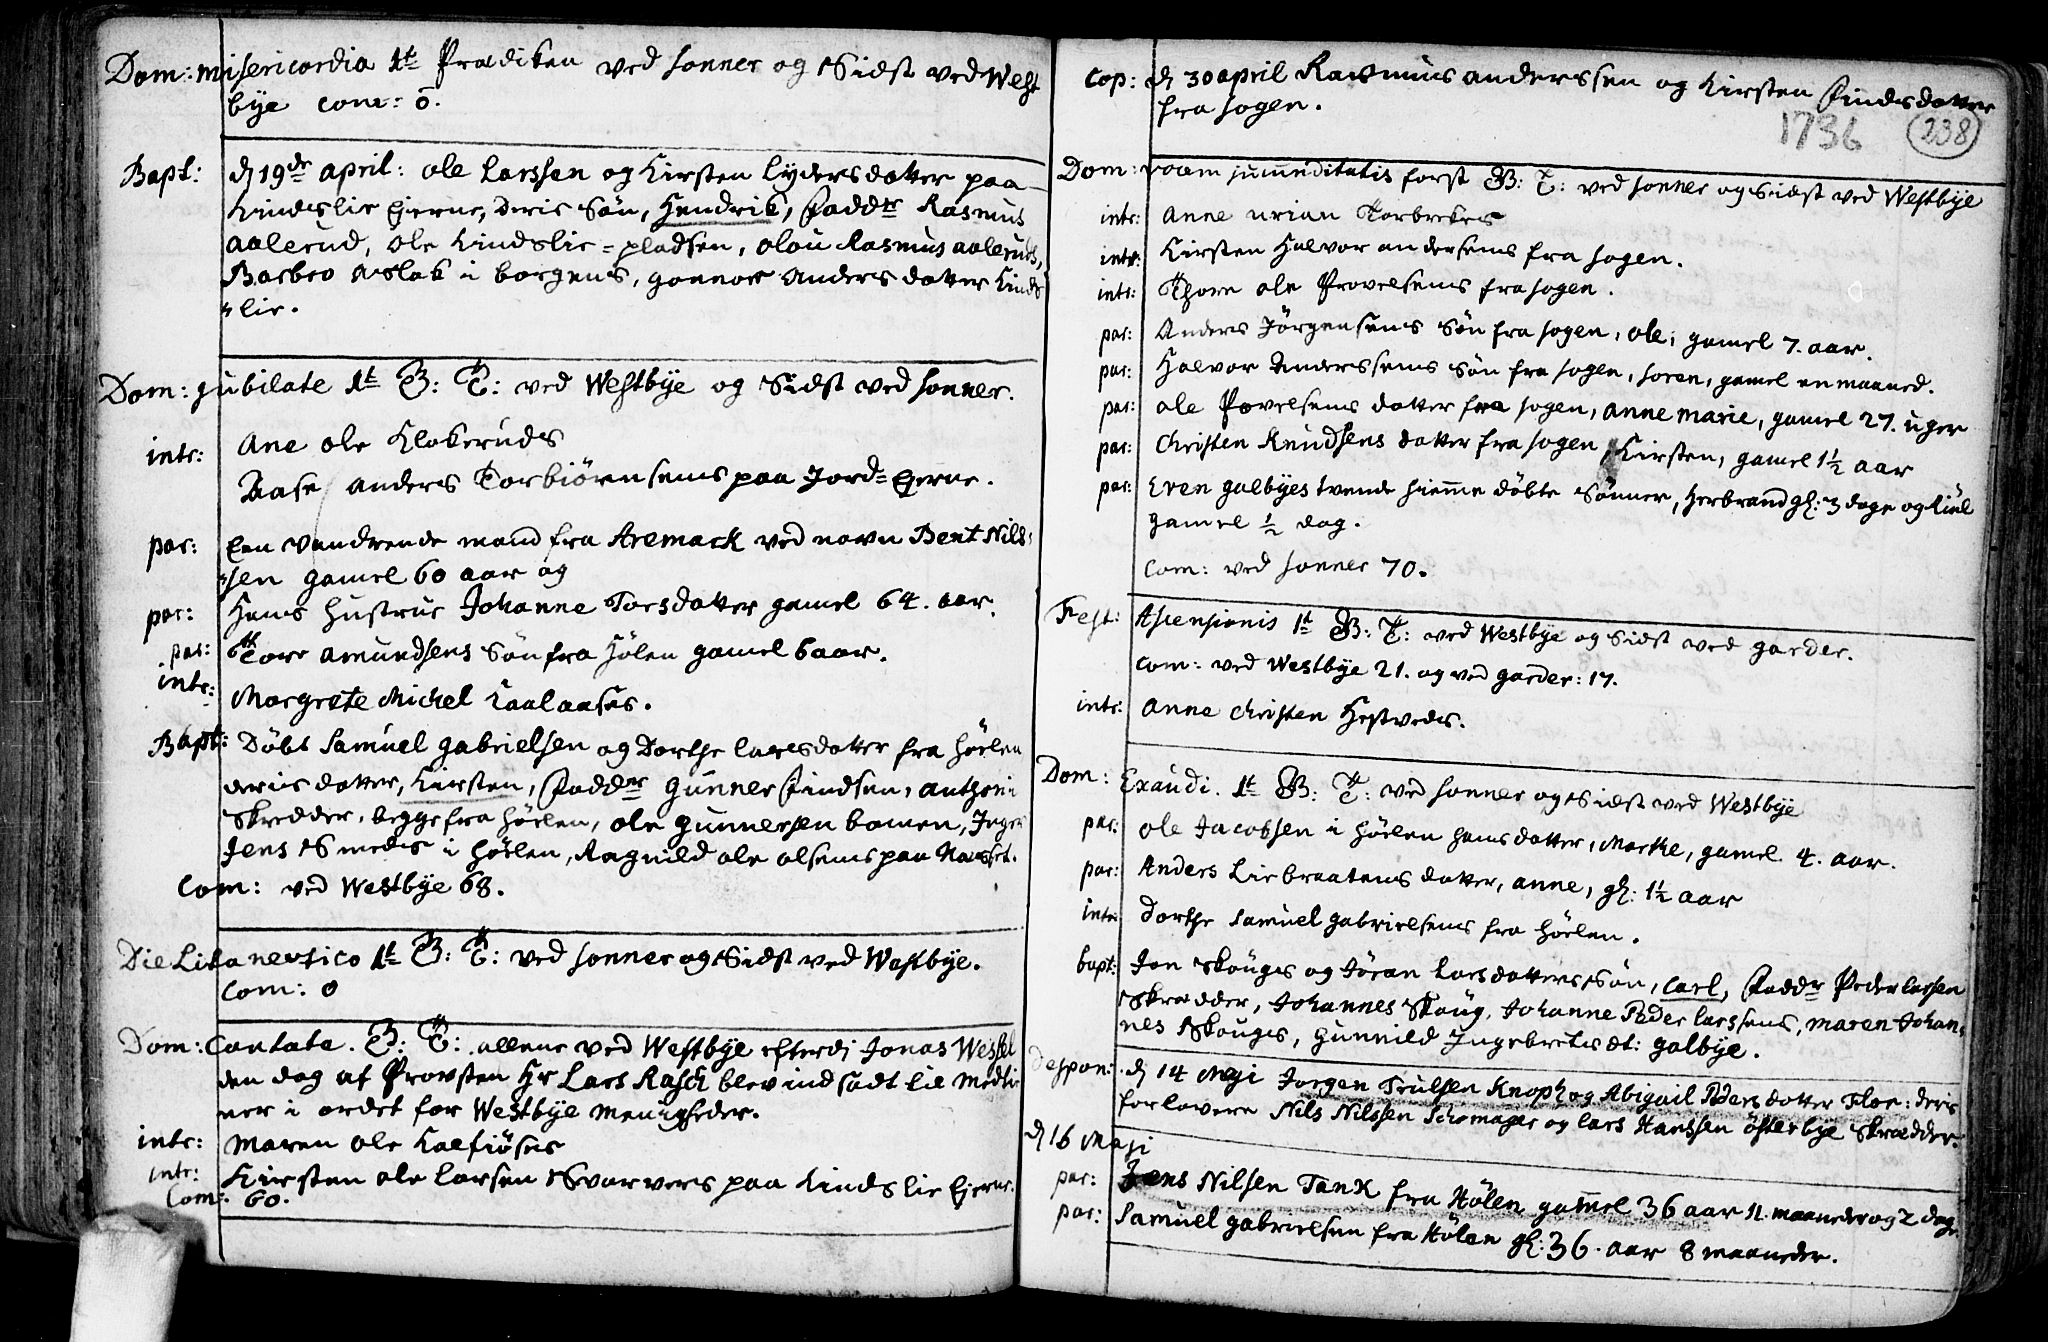 Dom: misericordia 1t Prædiken ved sonner og Sidst ved West
bye com: 0.
Bapt: d 19de april: ole Larssen og Kirsten Lydersdatter paa
Kindslie Eierne, deris Søn, Hendrik, Fadd: Rasmus
aalerud, ole Kindslie-pladsen, olou Rasmus aaleruds,
Barbro aslak i borgens, gonnor anders datter Kinds
"lie.
Dom: jubilate 1t B: T: ved Westbye og Sidst ved sonner.
intr: Ane ole Klokeruds
Aase anders Torbiørnsens paa Jord-Eierne.
par: Een vandrende mand fra Aremarck ved navn Bent Nils-
"sen gamel 60 aar og
par: Hans Hustrue Johanne Torsdatter gamel 64. aar.
par: Tore amundsens Søn fra Hølen gamel 6 aar.
intr: Margrete Michel Kaalaases.
Bapt: Døbt Samuel gabrielsen og Dorthe larsdatter fra Høelen
deris datter, Kirsten, Fadd: Gunner Findsen, anthoni
Skredder, begge fra Høelen, ole gunnersen bomen, Inger
Jens Smeds i Høelen, Ragnild ole olsens paa Næsset.
Com: ved Westbye 68.
Die Litaneutico 1t B: T: ved sonner og Sidst ved Westbye.
Com: 0
Dom: Cantate. B: T: allene ved Westbye efterdj Jonas Wessel
den dag af Provsten Hr Lars Rasch blev indsadt til Medtie
ner i ordet for Westbye Menigheder.
intr: Maren ole Kalfiøses
intr: Kirsten ole larsen Svarvers paa Kindslie Eierne.
Com: 60.
Cop: d 30 april Rasmus anderssen og Kirsten Findsdatter
fra sogen.
1736 238
Dom: vocem jucunditatis forst B: T: ved sonner og Sidst ved Westbye
intr: Anne urian Torbrekes
intr: Kirsten Halvor andersens fra sogen.
intr: Thore ole Povelsens fra sogen.
par: Anders Jörgensens Søn fra sogen, ole, gamel 7. aar.
par: Halvor Anderssens Søn fra sogen, soren, gamel en maaned.
par: ole Povelsens datter fra sogen, anne marie, gamel 27. uger
par: Christen Knudsens datter fra sogen, Kirsten, gamel 1½ aar
par: Even galbyes tvende hieme døbte Sønner, Herbrand gl: 3 dage og Kiel
gamel ½ dag.
Com: ved sonner 70.
Fest: Ascensionis 1t B: T: ved Westbye og Sidst ved garder.
Com: ved Westbye 21. og ved garder: 17.
intr: Anne Christen Hestveds.
Dom: Exaudi. 1t B: T: ved sonner og Sidst ved Westbye
par: ole Jacobsen i Høelen hans datter, Marthe, gamel 4. aar.
par: Anders Liebraatens datter, anne, gl: 1½ aar
intr: dorthe Samuel gabrielsens fra Høelen.
bapt: Jon Skouges og Jøran larsdatters Søn, Carl, Fadd: Peder larsen
Skredder, Johannes Skoug, Johanne Peder larssens, maren Johan-
nes Skouges, gunnild Ingebretsdt: galbye.
Despon: d 14 Maji Jorgen Trulsen Knoph og Abigail Pders datter Floe: deris
forlovere Nils Nilssen Schomager og lars Hanssen österbye Skrædder.
d 16 Maji
par: Jens Nilsen Tank fra Hölen gamel 36 aar 11. maaneder og 2 dage
par: Samuel gabrielsen fra Hölen gl: 36. aar 8 maaneder.